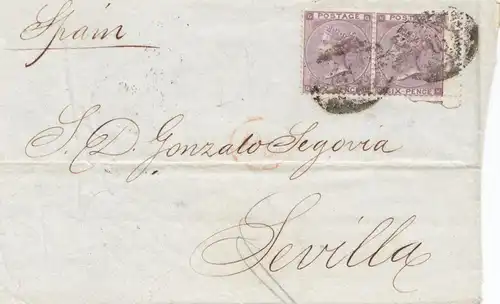 Spain
POSTAGE POSTAGE
SIX PENCE
S. D. Gonzalo Segovia
Sevilla